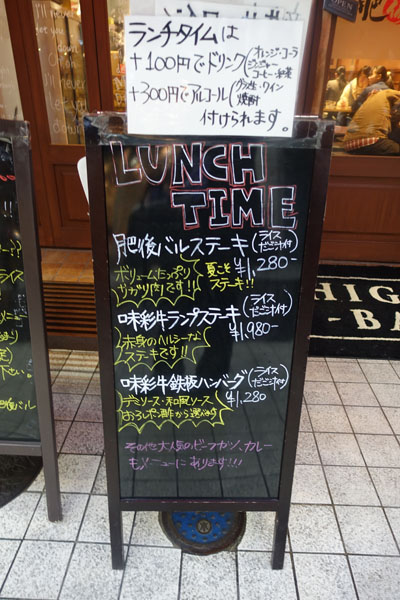 ランチタイムは
+100円でドリンク(オレンジ・コーラ
ジンジャー
コーヒー・紅茶
+300円でアルコール(グラス生・ワイン
焼酎
付けられます。
LUNCH
TIME
肥後バルステーキ(ライス
だご汁付)
ボリュームたっぷり
夏こそ
ステーキ!!
¥1,280-
味彩牛ランプステーキ(ライス
だご汁付)
¥1,980-
赤身のヘルシーな
ステーキです!!
味彩牛鉄板ハンバーグ(ライス
だご汁付)
¥1,280
デミソース・和風ソース
おろしポン酢から選べます
その他大人気のビーフカツ、カレー
もメニューにあります!!!
OPEN
HIG
-BA
肥後バル